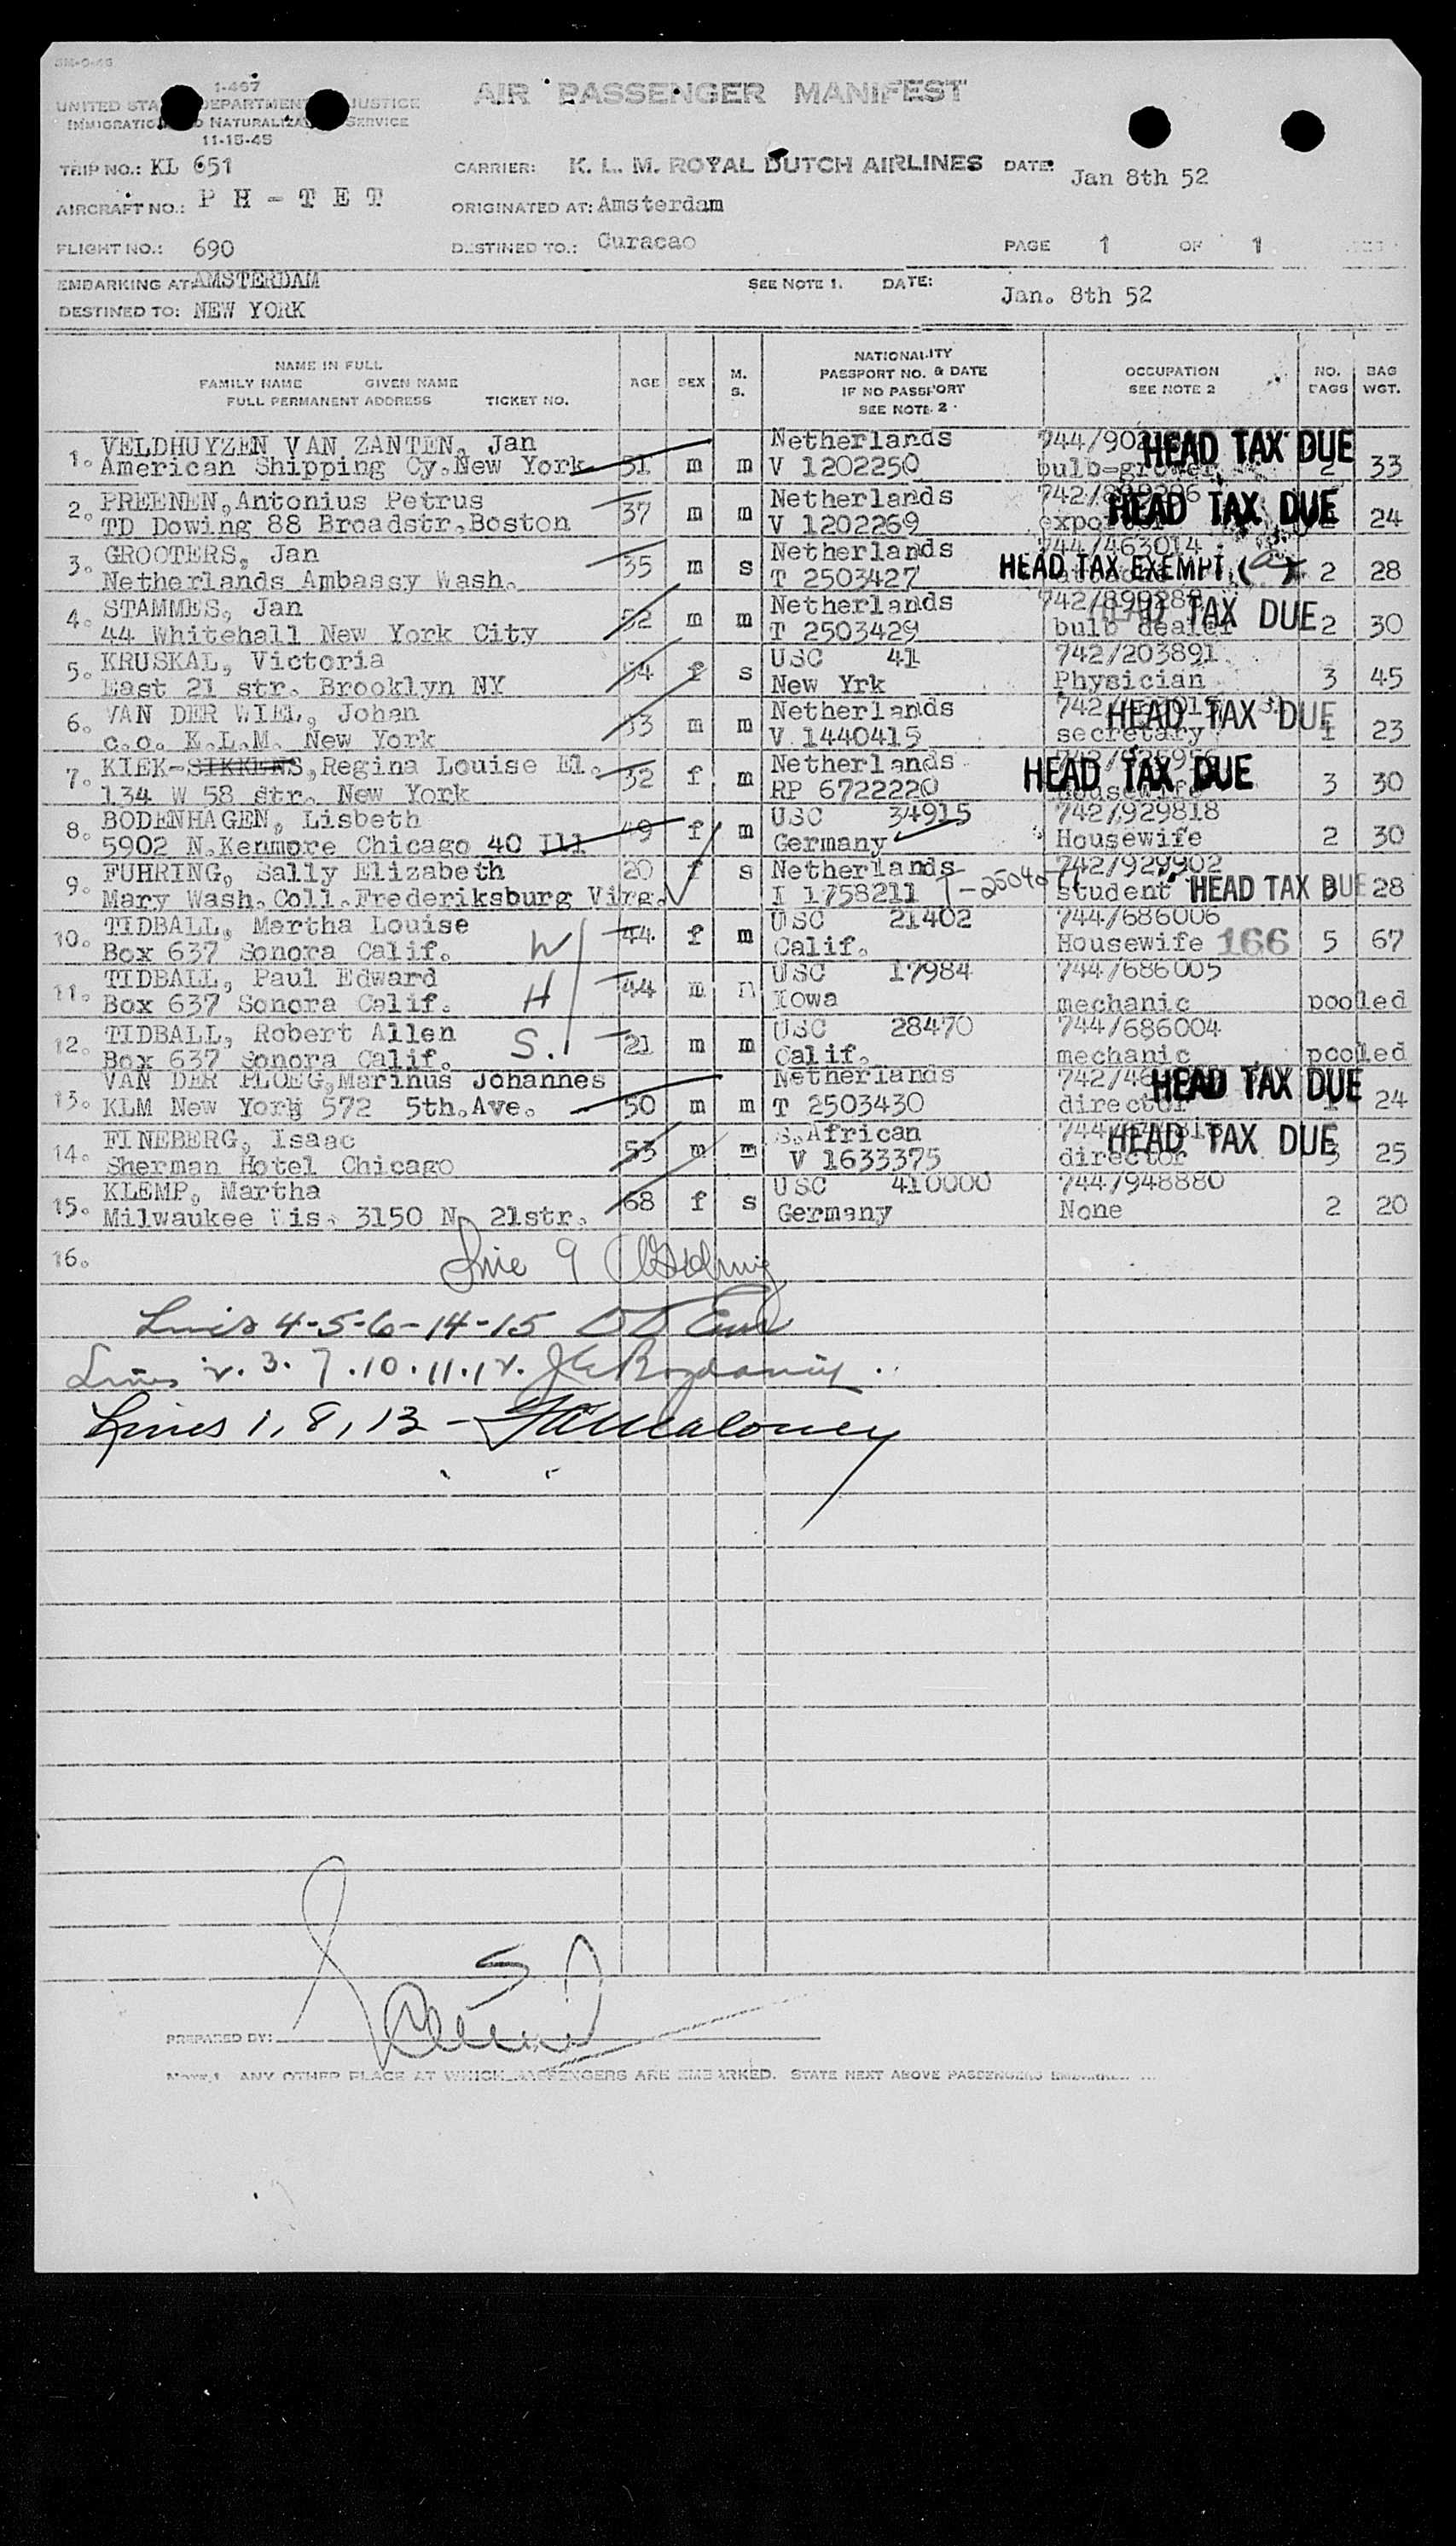 1-467
AIR PASSENGER MANIFEST
UNITED STA DEPARTMENT JUSTICE
IMMIGRATIO D NATURALIZA SERVICE
11-15-45
TRIP NO.: KL 651 CARRIER: K. L. M. ROYAL DUTCH AIRLINES DATE: Jan 8th 52
AIRCRAFT NO.: P H - T E T ORIGINATED AT: Amsterdam
FLIGHT NO.: 690 DESTINED TO.: Curacao PAGE 1 OF 1
EMBARKING AT: AMSTERDAM SEE NOTE 1. DATE: Jan. 8th 52
DESTINED TO: NEW YORK
NAME IN FULL
FAMILY NAME GIVEN NAME
FULL PERMANENT ADDRESS TICKET NO.
AGE SEX M. S.
NATIONALITY
PASSPORT NO. & DATE
IF NO PASSPORT
SEE NOTE 2.
OCCUPATION
SEE NOTE 2
NO. BAGS
BAG WGT.
1. VELDHUYZEN VAN ZANTEN, Jan Netherlands HEAD TAX DUE
American Shipping Cy.New York 31 m m V 1202250 bulb-grower 2 33
2. PREENEN,Antonius Petrus Netherlands HEAD TAX DUE
TD Dowing 88 Broadstr.Boston 37 m m V 1202269 24
3. GROOTERS, Jan Netherlands 744/463014
Netherlands Ambassy Wash. 35 m s T 2503427 HEAD TAX EXEMPT 2 28
4. STAMMES, Jan Netherlands HEAD TAX DUE
44 Whitehall New York City 52 m m T 2503429 bulb dealer 2 30
5. KRUSKAL, Victoria USC 41 742/203891
East 21 str. Brooklyn NY 54 f s New Yrk Physician 3 45
6. VAN DER WIEL, Johan Netherlands HEAD TAX DUE
c.o. K.L.M. New York 33 m m V 1440415 secretary 1 23
7. KIEK-SIKKENS,Regina Louise El. Netherlands HEAD TAX DUE
134 W 58 str. New York 32 f m RP 6722220 housewife 3 30
8. BODENHAGEN, Lisbeth USC 34915 742/929818
5902 N.Kenmore Chicago 40 Ill 49 f m Germany Housewife 2 30
9. FUHRING, Sally Elizabeth 20 f s Netherlands 742/929902
Mary Wash.Coll.Frederiksburg Virg. I 1758211 student HEAD TAX DUE 3 28
10. TIDBALL, Martha Louise USC 21402 744/686006
Box 637 Sonora Calif. W 44 f m Calif. Housewife 166 5 67
11. TIDBALL, Paul Edward USC 17984 744/686005
Box 637 Sonora Calif. H 44 m m Iowa mechanic pooled
12. TIDBALL, Robert Allen USC 28470 744/686004
Box 637 Sonora Calif. S. 21 m m Calif. mechanic pooled
13. VAN DER PLOEG,Marinus Johannes Netherlands HEAD TAX DUE
KLM New York 572 5th.Ave. 50 m m T 2503430 director 1 24
14. FINEBERG, Isaac S.African HEAD TAX DUE
Sherman Hotel Chicago 53 m m V 1633375 director 3 25
15. KLEMP, Martha USC 410000 744/948880
Milwaukee Wis. 3150 N. 21str. 68 f s Germany None 2 20
16.
Line 9
Lines 4-5-6-14-15
Lines 2. 3. 7. 10. 11. 12.
Lines 1, 8, 13 -
PREPARED BY:
ANY OTHER PLACE AT WHICH PASSENGERS ARE EMBARKED. STATE NEXT ABOVE PASSENGERS